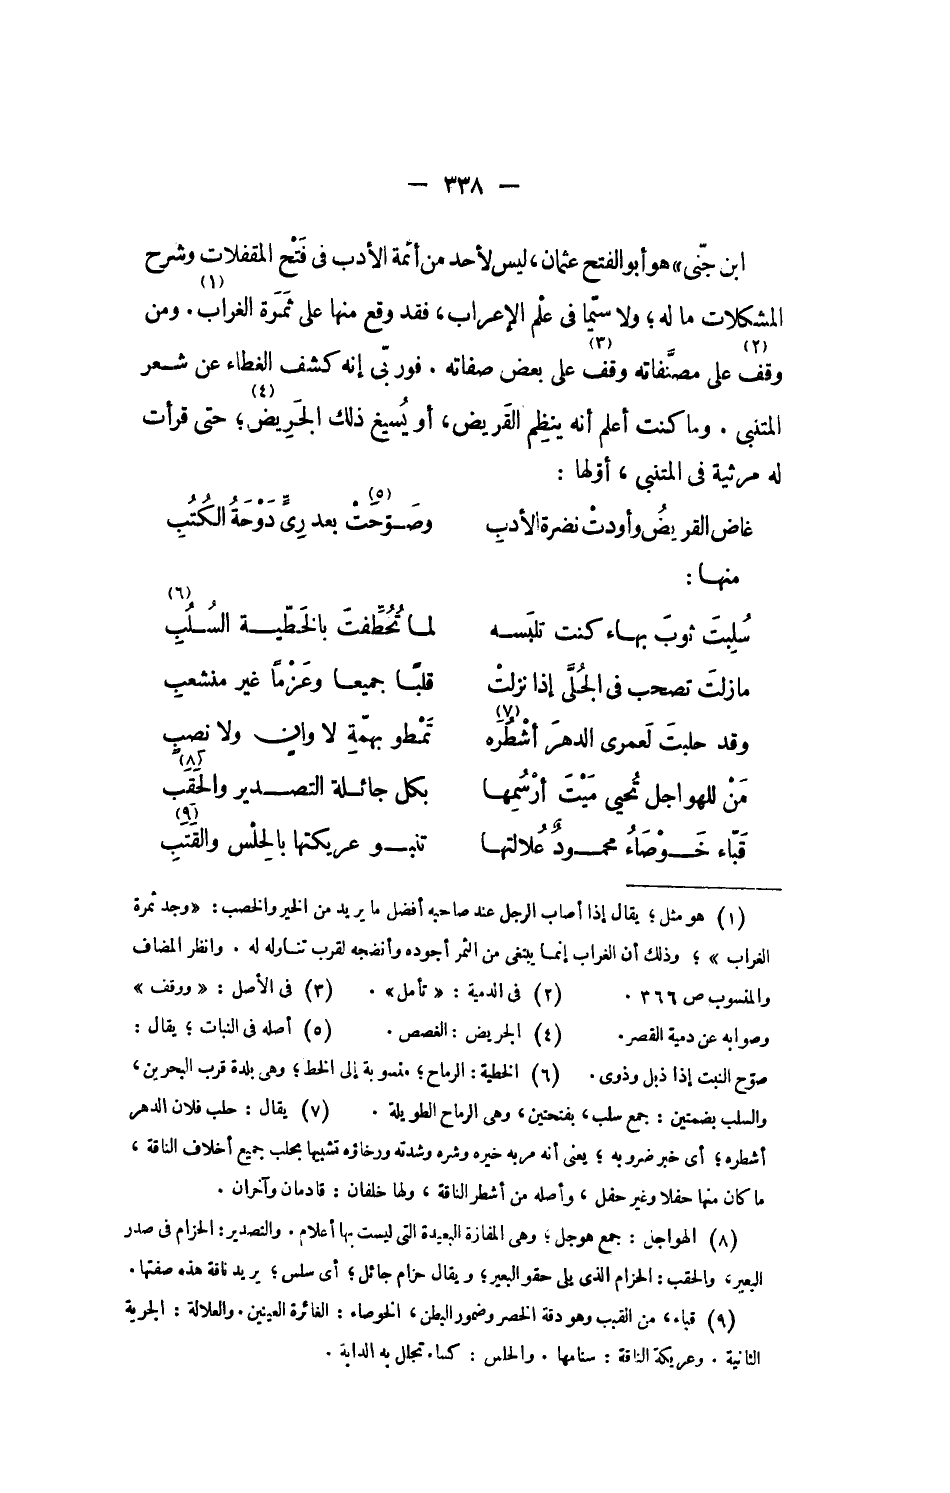 — ٣٣٨ —
ابن جنّى» هو أبو الفتح عثمان، ليس لأحد من أئمة الأدب فى فَتْح المقفلات وشرح
المشكلات ما له؛ ولا سيّما فى علْم الإعراب، فقد وقع منها على ثَمَرة الغراب(١). ومن
وقف(٢) على مصنَّفاته وقف(٣) على بعض صفاته. فوربّى إنه كشف الغطاء عن شعر
المتنبى. وما كنت أعلم أنه ينظِم القَريض، أو يُسيغ ذلك الجَرِيض(٤)؛ حتى قرأت
له مرثية فى المتنبى، أوّلها:
غاض القريضُ وأودتْ نضرة الأدبِ وصَوّحَتْ(٥) بعد رِىٍّ دَوْحَةُ الكُتُبِ
منها:
سُلِبتَ ثوبَ بهاء كنت تلبَسه لما تُخُطِّفتَ بالخَطّية السُلُبِ(٦)
مازلتَ تصحب فى الجُلَّى إذا نزلتْ قلبًا جميعا وعَزْمًا غير منشعبِ
وقد حلبتَ لَعمرى الدهرَ أشْطُرَه(٧) تَمْطو بهمّةِ لا وانٍ ولا نصبِ
مَنْ للهواجل تُحيى مَيْتَ أرْسُمِها بكل جائلة التصدير والحَقَبِ(٨)
قَبّاء خَوْصَاءُ محمودٌ عُلالتها تنبو عريكتها بالحِلْس والقَتَبِ(٩)
(١) هو مثل؛ يقال إذا أصاب الرجل عند صاحبه أفضل ما يريد من الخير والخصب: «وجد ثمرة
الغراب»؛ وذلك أن الغراب إنما يبتغى من الثمر أجوده وأنضجه لقرب تناوله له. وانظر المضاف
والمنسوب ص ٣٦٦. (٢) فى الدمية: «تأمل». (٣) فى الأصل: «ووقف»
وصوابه عن دمية القصر. (٤) الجريض: الغصص. (٥) أصله فى النبات؛ يقال:
صوّح النبت إذا ذبل وذوى. (٦) الخطية: الرماح؛ منسوبة إلى الخط؛ وهى بلدة قرب البحرين،
والسلب بضمتين: جمع سلب، بفتحتين، وهى الرماح الطويلة. (٧) يقال: حلب فلان الدهر
أشطره؛ أى خبر ضروبه؛ يعنى أنه مر به خيره وشره وشدته ورخاؤه تشبيها بحلب جميع أخلاف الناقة،
ما كان منها حفلا وغير حفل، وأصله من أشطر الناقة، ولها خلفان: قادمان وآخران.
(٨) الهواجل: جمع هوجل؛ وهى المفازة البعيدة التى ليست بها أعلام. والتصدير: الحزام فى صدر
البعير، والحقب: الحزام الذى يلى حقو البعير؛ ويقال حزام جائل؛ أى سلس؛ يريد ناقة هذه صفتها.
(٩) قباء، من القبب وهو دقة الخصر وضمور البطن، الخوصاء: الغائرة العينين. والعلالة: الجرية
الثانية. وعريكة الناقة: سنامها. والحلس: كساء تجلل به الدابة.